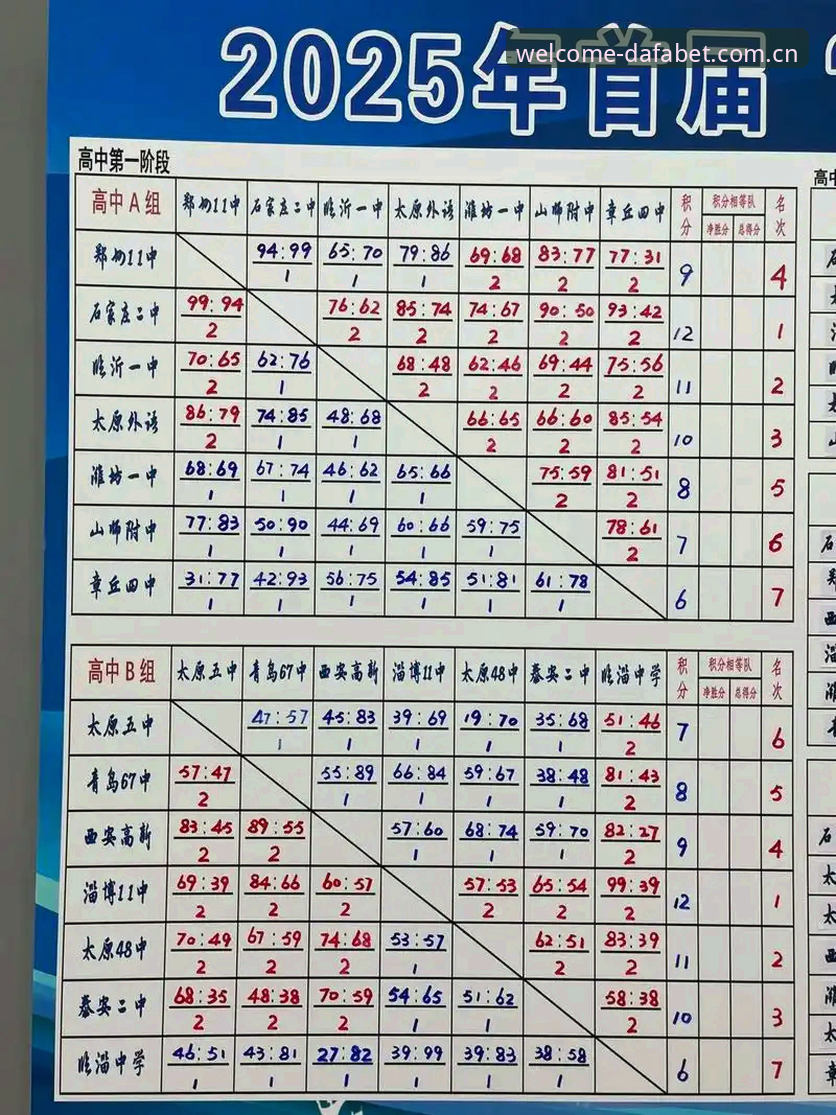 2025年首届
welcome-dafabet.com.cn
高中第一阶段
高中A组 郑州11中 石家庄二中 临沂一中 太原外语 潍坊一中 山师附中 章丘四中 积分 积分相等队 净胜分 总得分 名次
郑州11中 94:99 1 65:70 1 79:86 1 69:68 2 83:77 2 77:31 2 9 4
石家庄二中 99:94 2 76:62 2 85:74 2 74:67 2 90:50 2 93:42 2 12 1
临沂一中 70:65 2 62:76 1 68:48 2 62:46 2 69:44 2 75:56 2 11 2
太原外语 86:79 2 74:85 1 48:68 1 66:65 2 66:60 2 85:54 2 10 3
潍坊一中 68:69 1 67:74 1 46:62 1 65:66 1 75:59 2 81:51 2 8 5
山师附中 77:83 1 50:90 1 44:69 1 60:66 1 59:75 1 78:61 2 7 6
章丘四中 31:77 1 42:93 1 56:75 1 54:85 1 51:81 1 61:78 1 6 7
高中B组 太原五中 青岛67中 西安高新 淄博11中 太原48中 泰安二中 临淄中学 积分 积分相等队 净胜分 总得分 名次
太原五中 47:57 1 45:83 1 39:69 1 19:70 1 35:68 1 51:46 2 7 6
青岛67中 57:47 2 55:89 1 66:84 1 59:67 1 38:48 1 81:43 2 8 5
西安高新 83:45 2 89:55 2 57:60 1 68:74 1 59:70 1 82:27 2 9 4
淄博11中 69:39 2 84:66 2 60:57 2 57:53 2 65:54 2 99:39 2 12 1
太原48中 70:49 2 67:59 2 74:68 2 53:57 1 62:51 2 83:39 2 11 2
泰安二中 68:35 2 48:38 2 70:59 2 54:65 1 51:62 1 58:38 2 10 3
临淄中学 46:51 1 43:81 1 27:82 1 39:99 1 39:83 1 38:58 1 6 7